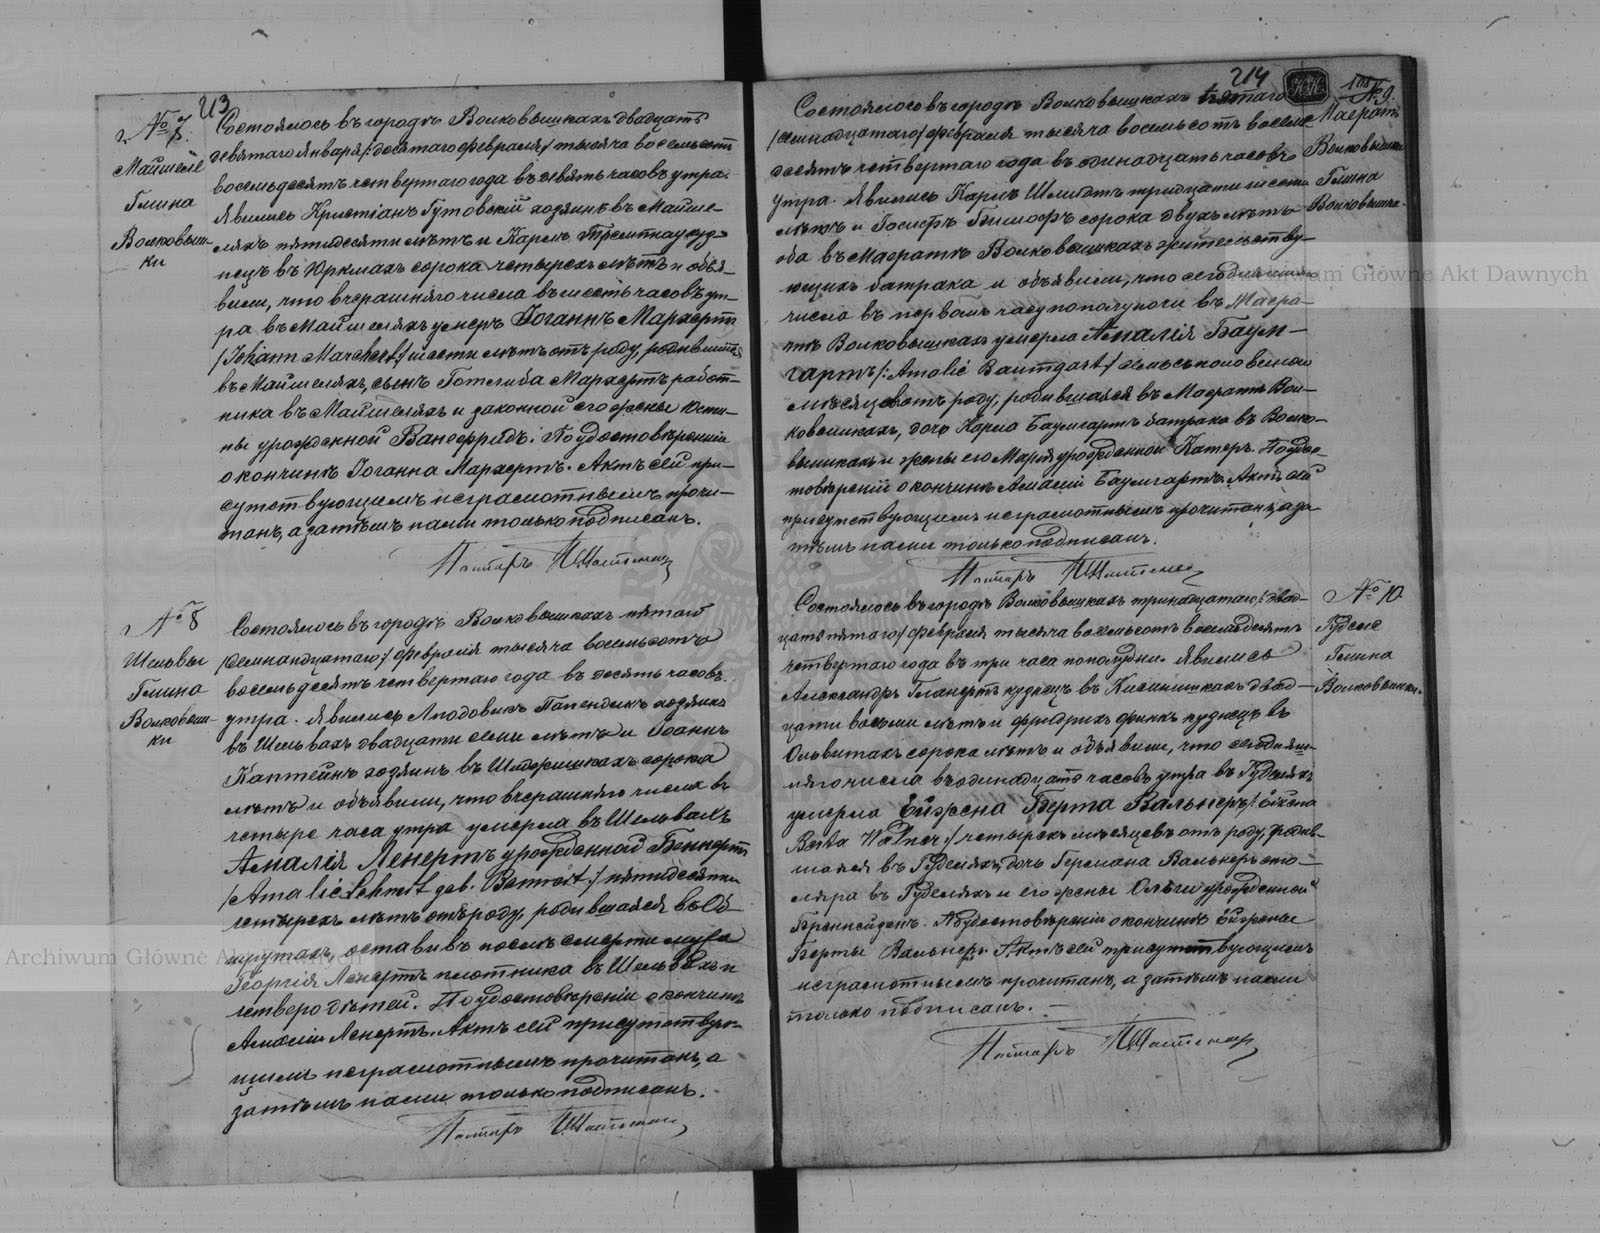 213
№ 7.
Майшеле
Гмина
Волковыш-
ки
Состоялось въ городѣ Волковышкахъ двадцать
девятаго Января /: десятаго февраля / тысяча восемьсотъ
восемьдесятъ четвертаго года въ девять часовъ утра.
Явились Христіанъ Гутовскій хозяинъ въ Майше-
ляхъ пятидесяти лѣтъ и Карлъ куз-
нецъ въ Юркшахъ сорока четырехъ лѣтъ и объя-
вили, что вчерашняго числа въ шесть часовъ ут-
ра въ Майшеляхъ умеръ Іоганнъ Мархертъ
/ Johann Marchert :/ шести лѣтъ отъ роду, родившійся
въ Майшеляхъ, сынъ Готлиба Мархертъ работ-
ника въ Майшеляхъ и законной его жены Юсти-
ны урожденной Ванефридъ. По удостовѣреніи
о кончинѣ Іоганна Мархертъ. Актъ сей при-
сутствующимъ неграмотнымъ прочи-
танъ, а затѣмъ нами только подписанъ.
Пасторъ
№ 8
Шельвы
Гмина
Волковыш-
ки
Состоялось въ городѣ Волковышкахъ пятаго
/ семнандцатаго :/ февраля тысяча восемьсотъ
восемьдесятъ четвертаго года въ десять часовъ
утра. Явились Людовикъ Папендикъ хозяинъ
въ Шельвахъ двадцати семи лѣтъ и Іоаннъ
Каптейнъ хозяинъ въ сорока
лѣтъ и объявили, что вчерашняго числа въ
четыре часа утра умерла въ Шельвахъ
Амалія Ленертъ урожденной Беннертъ
/ Amalie Lehnert geb. Bennert :/ пятидесяти
четырехъ лѣтъ отъ роду, родившаяся въ Об-
шрутахъ, оставивъ послѣ смерти мужа
Георгія Ленертъ плотника въ Шельвахъ и
четверо дѣтей. По удостовѣреніи о кончинѣ
Амаліи Ленертъ. Актъ сей присутствую-
щимъ неграмотнымъ прочитанъ, а
затѣмъ нами только подписанъ.
Пасторъ
214
№ 9.
Маератъ
Волковышки
Гмина
Волковышки.
Состоялось въ городѣ Волковышкахъ пятаго
/ семнадцатаго / февраля тысяча восемьсотъ восемь-
десятъ четвертаго года въ одинадцать часовъ
утра. Явились Карлъ Шмидтъ тридцати шести
лѣтъ и Іосифъ Бишофъ сорока двухъ лѣтъ
оба въ Маератѣ Волковышкахъ жительству-
ющихъ батрака и объявили, что сегодняшняго
числа въ первомъ часу пополуночи въ Маера-
тѣ Волковышкахъ умерла Амалія Баум-
гартъ /: Amalie Baumgart / семь съ половиною
мѣсяцовъ отъ роду, родившаяся въ Маератѣ Вол-
ковышкахъ, дочь Карла Баумгартъ батрака въ Волко-
вышкахъ и жены его Маріи урожденной Катеръ. По удос-
товѣреніи о кончинѣ Амаліи Баумгартъ. Актъ сей
присутствующимъ неграмотнымъ прочитанъ, а за-
тѣмъ нами только подписанъ.
Пасторъ
№ 10.
Гудсле
Гмина
Волковышки.
Состоялось въ городѣ Волковышкахъ тринадцатаго /: двад-
цать пятаго / февраля тысяча восемьсотъ восемьдесятъ
четвертаго года въ три часа пополудни. Явились
Александръ Гланертъ кузнецъ въ двад-
цати восьми лѣтъ и фридрихъ финкъ кузнецъ въ
Ольвитахъ сорока лѣтъ и объявили, что сегодняш-
няго числа въ одинадцать часовъ утра въ Гудсляхъ
умерла Ейгена Берта Вальнеръ /: Eugena
Berta Walner :/ четырехъ мѣсяцевъ отъ роду, родив-
шаяся въ Гудсляхъ, дочь Германа Вальнеръ сто-
ляра въ Гудсляхъ и его жены Ольги урожденной
По удостовѣреніи о кончинѣ Ейгены
Берты Вальнеръ. Актъ сей присутствующимъ
неграмотнымъ прочитанъ, а затѣмъ нами
только подписанъ. —
Пасторъ
Archiwum Główne Akt Dawnych
Archiwum Główne Akt Dawnych